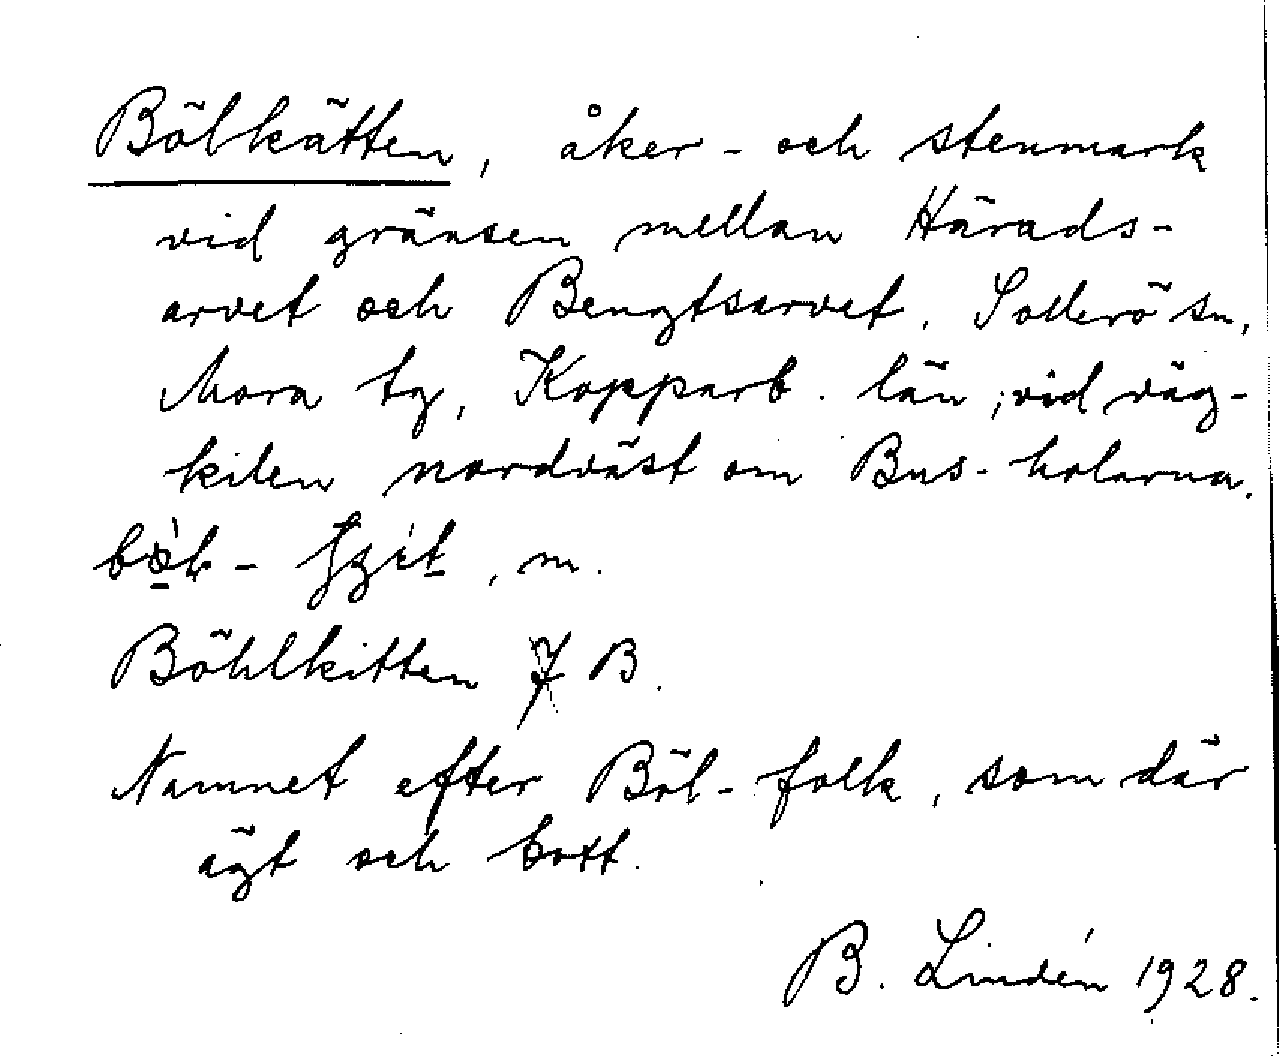 Bölkätten, åker- och stenmark
vid gränsen mellan Härads-
arvet och Bengtsarvet, Sollerö sn,
Mora tg, Kopparb. län, vid väg-
kilen nordväst om Bus-holarna.
m.
Böhlkitten B.
Namnet efter Böl-folk, som där
ägt och bott.
B. Lindén 1928.